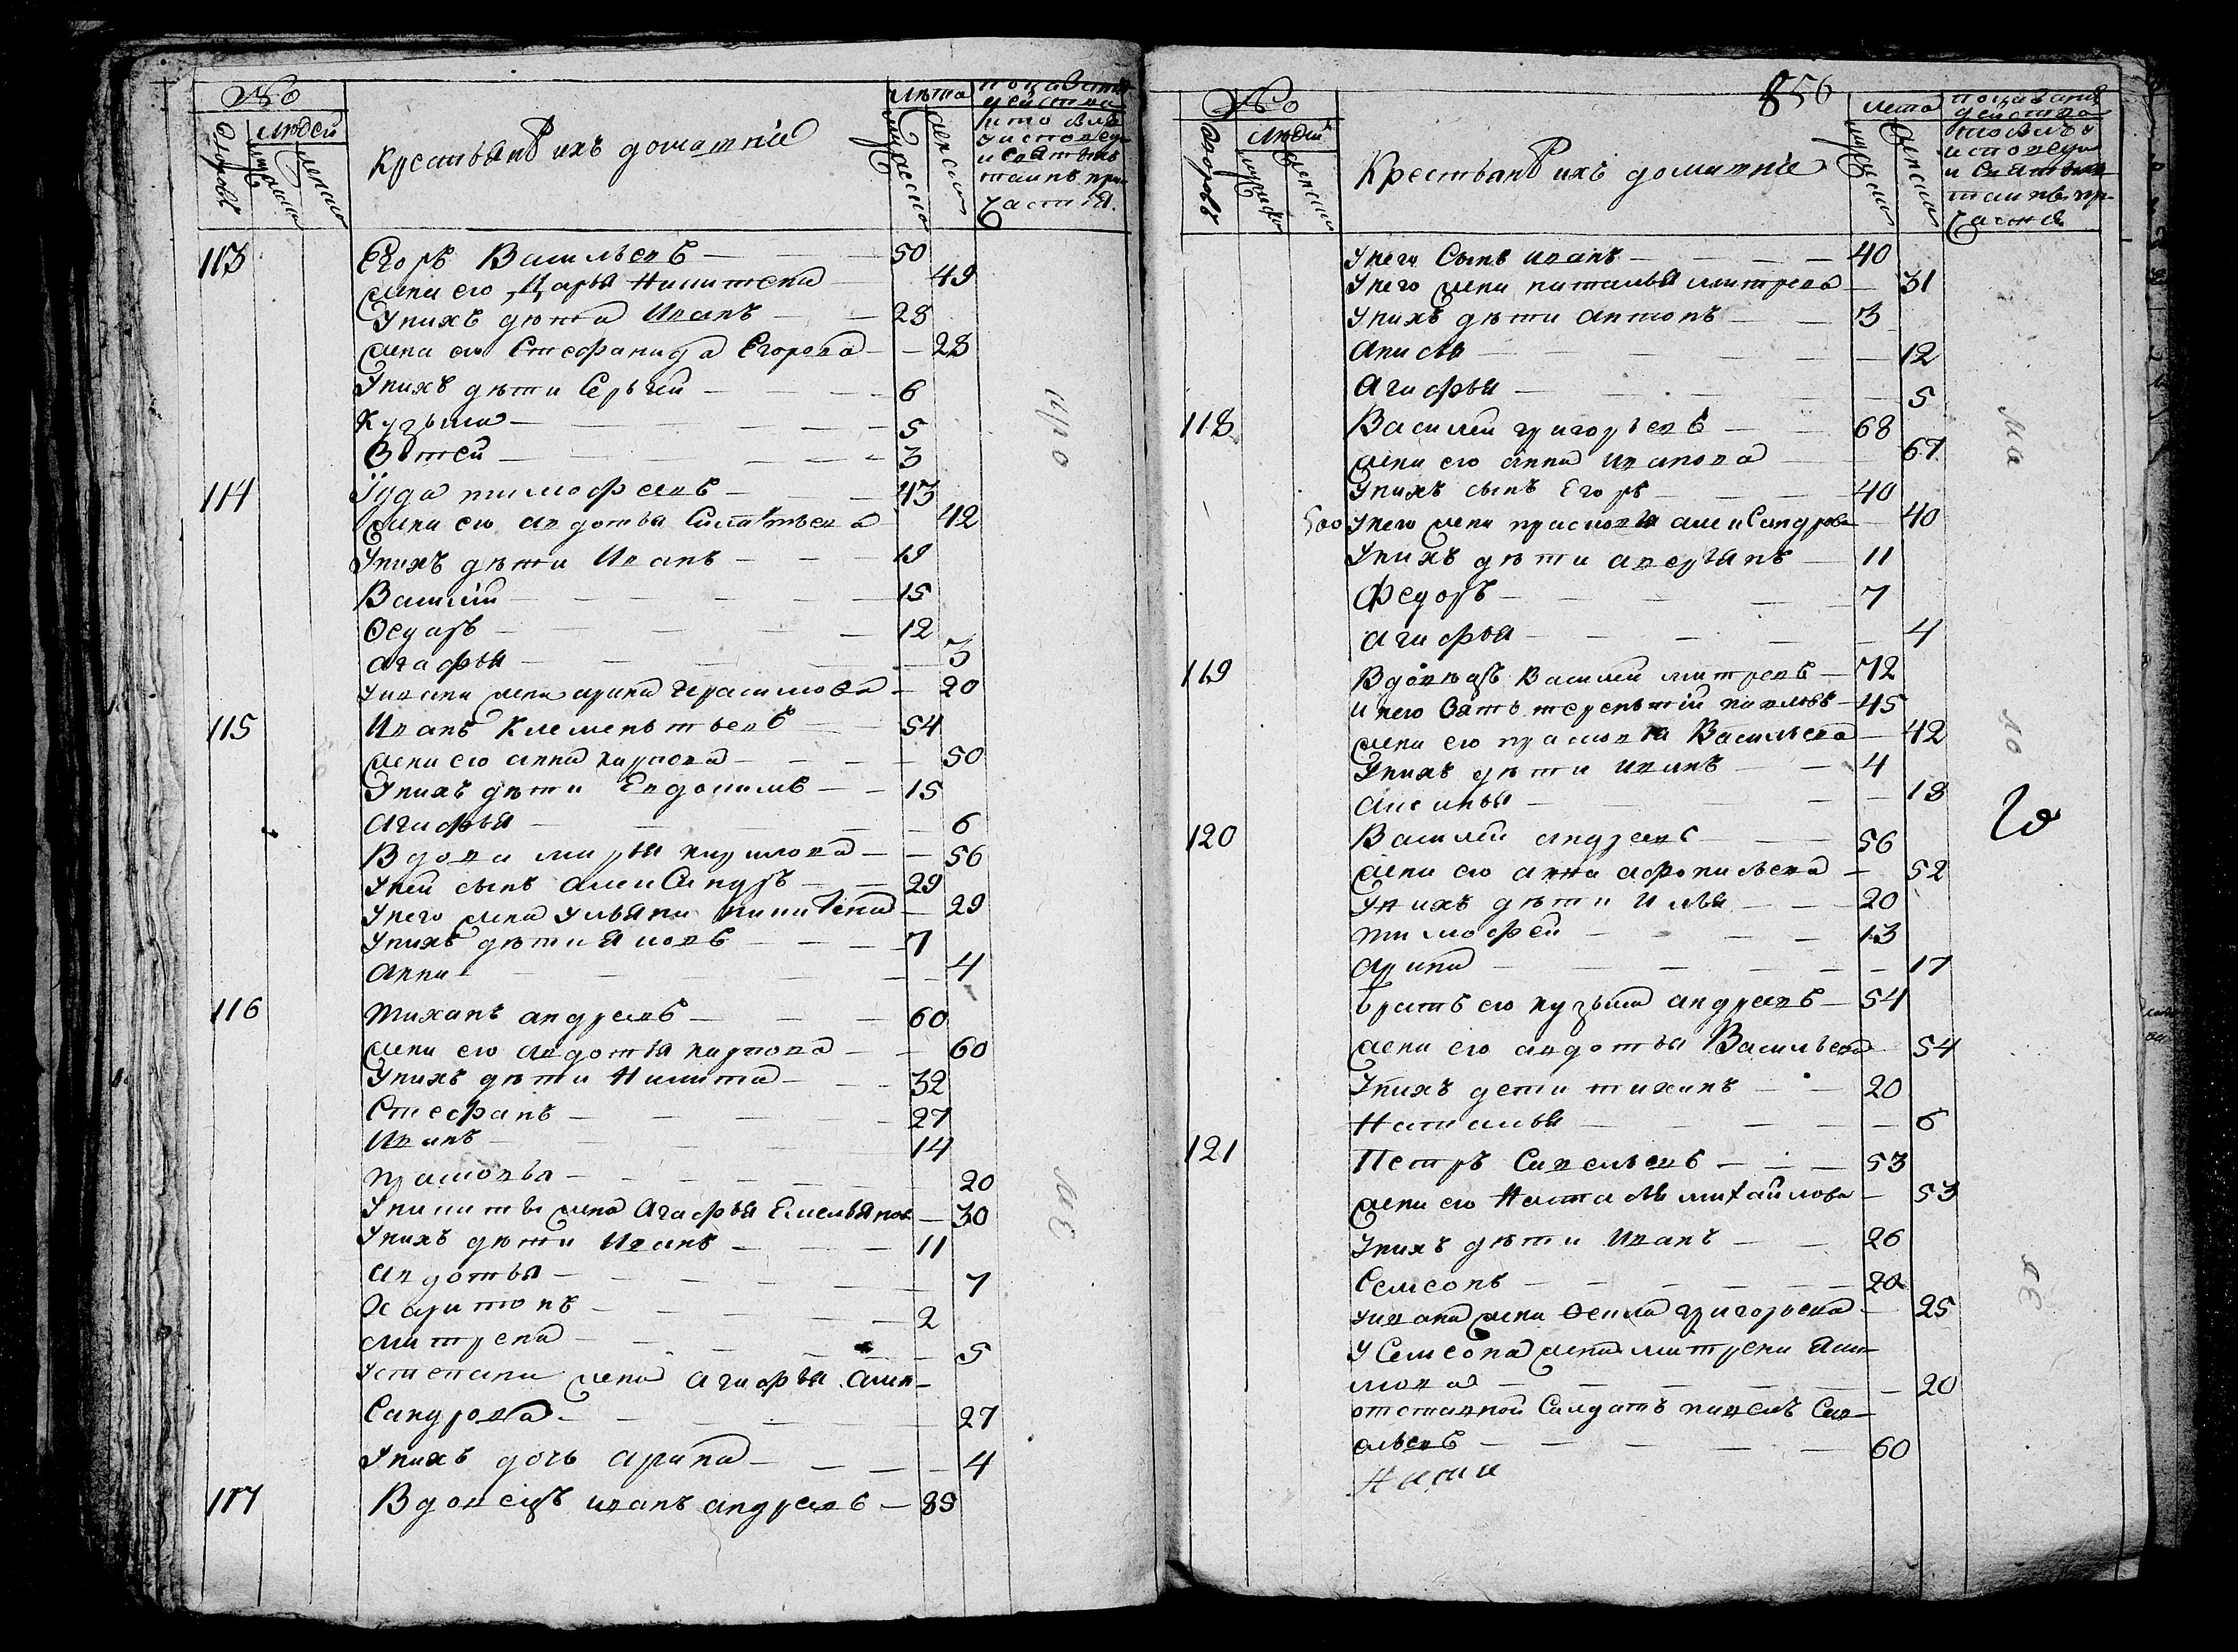 №
людей
дворовъ
мужеска
женска
крестьяне и ихъ домашніе
лѣта
мужеска
женска
показание
действа
кто былъ
у исповеди
и святыхъ
таинъ при
частия.
113 Егоръ Васильевъ — 50
жена его Дарья Никитена — 49
у нихъ дѣти Иванъ — 28
жена его Стефанида Егорова — 28
у нихъ дѣти Сергѣй — 6
Кузьма — 5
Фотей — 3
114 Іуда тимофеевъ — 43
жена его авдотья — 42
у нихъ дѣти Иванъ — 19
Василій — 15
Ѳедаръ — 12
агафья — 3
у ивана жена арина Герасимова — 20
115 Иванъ Клеменьтьевъ — 54
жена его анна карпова — 50
у нихъ дѣти Евдокимъ — 15
Агафья — 6
Вдова марья кирилова — 56
у ней сынъ алеѯандръ — 29
у него жена ульяна никитена — 29
у нихъ дѣти Яковъ — 7
анна — 4
116 тиханъ андреевъ — 60
жена его авдотья карпова — 60
у нихъ дѣти Никита — 32
Стефанъ — 27
Иванъ — 14
прасковья — 20
у никиты жена Агафья Емельянов — 30
у нихъ дѣти Иванъ — 11
авдотья — 7
Харитонъ — 2
митрена — 5
у степана жена агафья алек—
сандрова — 27
у нихъ дочь арина — 4
117 Вдовецъ иванъ андреевъ — 85
про
за Е
856
№
людей
дворовъ
мужеска
женска
крестьяне и ихъ домашніе
лета
мужеска
женска
показание
действа
кто былъ у
исповеди
и святыхъ
таинъ пр
частия
у него сынъ иванъ — 40
у него жена наталья митрева — 31
у нихъ дѣти антонъ — 3
анисья — 12
агафья — 5
118 Василей григорьевъ — 68
жена его анна иванова — 67
у нихъ сынъ Егоръ — 40
у него жена прасковья александрова — 40
у нихъ дѣти аверьянъ — 11
Федоръ — 7
агафья — 4
119 Вдовецъ Василей митревъ — 72
у него зять терентій павловъ — 45
жена его прасковья Васильева — 42
у нихъ дѣти иванъ — 4
аксинья — 18
120 Василей андреевъ — 56
жена его анна афонасьева — 52
у нихъ дѣти илья — 20
тимофей — 13
арина — 17
братъ его кузьма андреевъ — 54
жена его авдотья Васильева — 54
у нихъ дети тиханъ — 20
Наталья — 6
121 Петръ Савельевъ — 53
жена его Наталья михайлова — 53
у нихъ дѣти Иванъ — 26
Семеонъ — 20
у ивана жена Ѳекла григорьева — 25
у Семеона жена митрена Яки—
мова — 20
отставной Салдатъ павелъ Сав—
ельевъ — 60
Ната
Ма
ло
ю